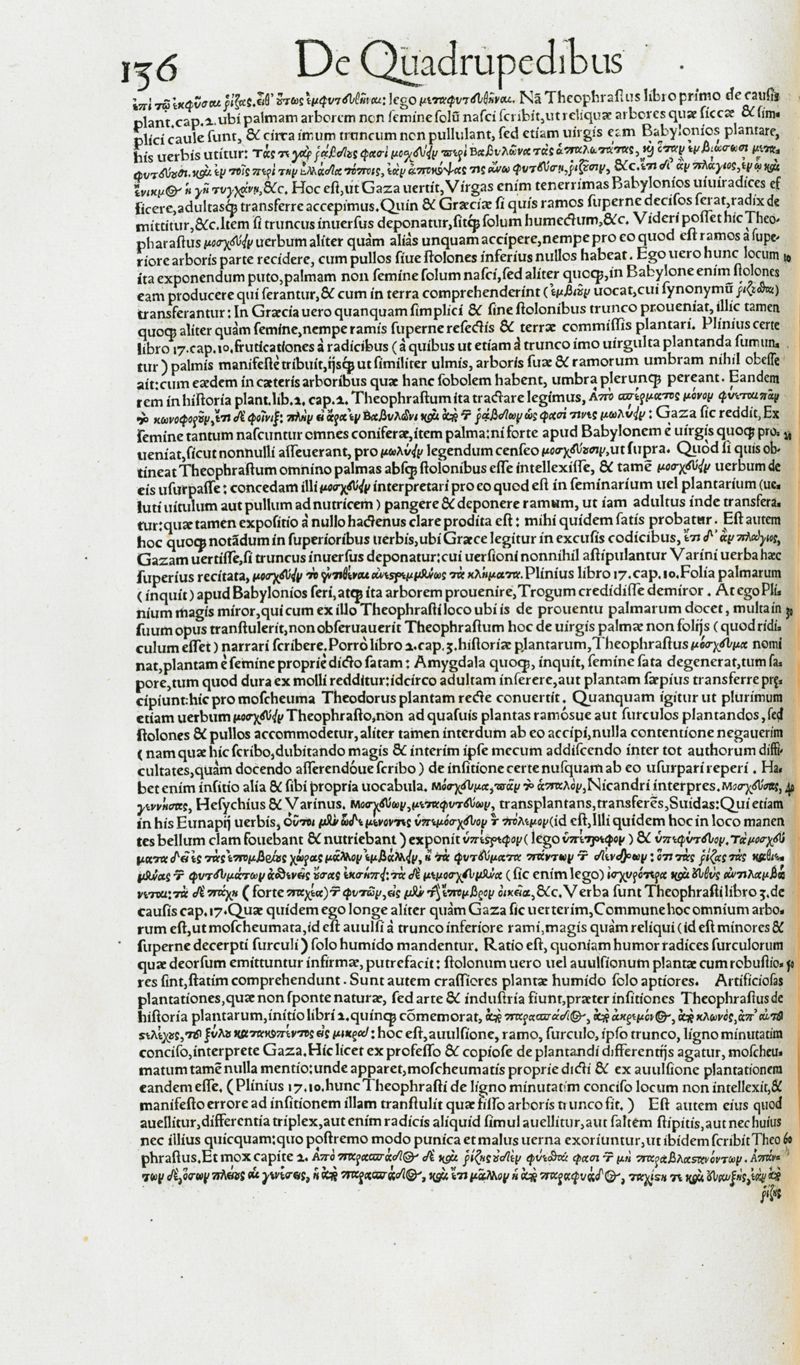 136 De Quadrupedibus
ἐπὶ τῷ ἐκφῦσαι ῥίζας. εἶθ᾽ οὕτως ἐμφυτευθῆναι: lego μεταφυτευθῆναι. Nã Theophrastus libro primo de causis
plant.cap.2.ubi palmam arborem non semine solũ nasci scribit,ut reliquæ arbores quæ siccæ & sim-
plici caule sunt, & circa imum truncum non pullulant, sed etiam uirgis eam Babylonios plantare,
his uerbis utitur: Τάς τε γὰρ ῥάβδους φασὶ μοσχεύειν περὶ Βαβυλῶνα τὰς ἁπαλωτάτας,
φυτεύουσι. &c.
&c. Hoc est, ut Gaza uertit, Virgas enim tenerrimas Babylonios uiuiradices ef
ficere, adultasq; transferre accepimus. Quin & Græciæ si quis ramos superne decisos serat, radix de
mittitur,&c. Item si truncus inuersus deponatur, sitq; solum humectum,&c. Videri posset hic Theo-
pharastus μοσχεύειν uerbum aliter quàm aliàs unquam accipere, nempe pro eo quod est ramos à supe-
riore arboris parte recidere, cum pullos siue stolones inferius nullos habeat. Ego uero hunc locum 10
ita exponendum puto, palmam non semine solum nasci, sed aliter quoq;, in Babylone enim stolones
eam producere qui serantur, & cum in terra comprehenderint (ἐμβιοῦν uocat, cui synonymũ ῥιζοῦσθαι)
transferantur: In Græcia uero quanquam simplici & sine stolonibus trunco proueniat, illic tamen
quoq; aliter quàm semine, nempe ramis superne resectis & terræ commissis plantari. Plinius certe
libro 17.cap.10. fruticationes à radicibus (à quibus ut etiam à trunco imo uirgulta plantanda sumun-
tur) palmis manifestè tribuit, ijsq; ut similiter ulmis, arboris suæ & ramorum umbram nihil obesse
ait: cum eædem in cæteris arboribus quæ hanc sobolem habent, umbra plerunq; pereant. Eandem
rem in historia plant. lib. 2. cap. 2. Theophrastum ita tractare legimus, Ἀπὸ σπέρματος μόνου φύεται πᾶν
τὸ κωνοφόρον, ἔτι δὲ φοῖνιξ: πλὴν εἰ ἄρα ἐν Βαβυλῶνι καὶ ἀπὸ τῶν ῥάβδων ὥς φασί τινες μωλύειν: Gaza sic reddit, Ex
semine tantum nascuntur omnes coniferæ, item palma: ni forte apud Babylonem è uirgis quoq; pro-
ueniat, sicut nonnulli asseuerant, pro μωλύειν legendum censeo μοσχεύουσιν, ut supra. Quòd si quis ob-
tineat Theophrastum omnino palmas absq; stolonibus esse intellexisse, & tamẽ μοσχεύειν uerbum de
eis usurpasse: concedam illi μοσχεύειν interpretari pro eo quod est in seminarium uel plantarium (ue-
luti uitulum aut pullum ad nutricem) pangere & deponere ramum, ut iam adultus inde transfera-
tur: quæ tamen expositio à nullo hactenus clare prodita est: mihi quidem satis probatur. Est autem
hoc quoq; notãdum in superioribus uerbis, ubi Græce legitur in excusis codicibus, ἔτι δ᾽ ἂν πλάγιος,
Gazam uertisse, si truncus inuersus deponatur: cui uersioni nonnihil astipulantur Varini uerba hæc
superius recitata, μοσχεύειν τὸ ἐντιθέναι ἀνεστραμμένως τὰ κλήματα. Plinius libro 17.cap.10. Folia palmarum
(inquit) apud Babylonios seri, atq; ita arborem prouenire, Trogum credidisse demiror. At ego Pli-
nium magis miror, qui cum ex illo Theophrasti loco ubi is de prouentu palmarum docet, multa in 30
suum opus transtulerit, non obseruauerit Theophrastum hoc de uirgis palmæ non folijs (quod ridi-
culum esset) narrari scribere. Porrò libro 2.cap.3. historiæ plantarum, Theophrastus μόσχευμα nomi
nat, plantam è semine propriè dicto satam: Amygdala quoq;, inquit, semine sata degenerat, tum sa-
pore, tum quod dura ex molli redditur: idcirco adultam inserere, aut plantam sæpius transferre prę-
cipiunt: hic pro moscheuma Theodorus plantam recte conuertit. Quanquam igitur ut plurimum
etiam uerbum μοσχεύειν Theophrasto, non ad quasuis plantas ramósue aut surculos plantandos, sed
stolones & pullos accommodetur, aliter tamen interdum ab eo accipi, nulla contentione negauerim
(nam quæ hic scribo, dubitando magis & interim ipse mecum addiscendo inter tot authorum diffi-
cultates, quàm docendo asserendóue scribo) de insitione certe nusquam ab eo usurpari reperi. Ha-
bet enim insitio alia & sibi propria uocabula. Μόσχευμα, πᾶν τὸ ἁπαλὸν, Nicandri interpres. Μοσχεύσας, 40
γεννήσας, Hesychius & Varinus. Μοσχεύων, μεταφυτεύων, transplantans, transferẽs, Suidas: Qui etiam
in his Eunapij uerbis, Οὗτοι μὲν ὧδε μένοντες ὑπεμόσχευον τὸν πόλεμον (id est, Illi quidem hoc in loco manen
tes bellum clam fouebant & nutriebant) exponit ὑπέστρεφον (lego ὑπέτρεφον) & ὑπεφύτευον. Τὰ μοσχεύ
ματα δ᾽ εἰς τὰς ἐπομβρίας χώρας μᾶλλον ἐμβάλλειν, ἢ τὰ φυτεύματα πάντων τῶν δένδρων: ὅτι τὰς ῥίζας τὰς
(sic enim lego) ἰσχυρότερα καὶ εὐθὺς ἀντιλαμβά
νεται: τὰ δὲ πάχη (forte παχέα) τῶν φυτῶν, εἰς μὲν τὴν ἔπομβρον οἰκεῖα, &c. Verba sunt Theophrasti libro 3. de
causis cap. 17. Quæ quidem ego longe aliter quàm Gaza sic uerterim, Commune hoc omnium arbo-
rum est, ut moscheumata, id est auulsi à trunco inferiore rami, magis quàm reliqui (id est minores &
superne decerpti surculi) solo humido mandentur. Ratio est, quoniam humor radices surculorum
quæ deorsum emittuntur infirmæ, putrefacit: stolonum uero uel auulsionum plantæ cum robustio- 50
res sint, statim comprehendunt. Sunt autem crassiores plantæ humido solo aptiores. Artificiosas
plantationes, quæ non sponte naturæ, sed arte & industria fiunt, præter insitiones Theophrastus de
historia plantarum, initio libri 2. quinq; cõmemorat, ἀπὸ παρασπάδος, ἀπὸ ἀκρεμόνος, ἀπὸ κλωνός, ἀπ᾽ αὐτοῦ
στελέχους, τοῦ ξύλου κατακοπέντος εἰς μικρά: hoc est, auulsione, ramo, surculo, ipso trunco, ligno minutatim
conciso, interprete Gaza. Hic licet ex professo & copiose de plantandi differentijs agatur, moscheu-
matum tamẽ nulla mentio: unde apparet, moscheumatis proprie dicti & ex auulsione plantationem
eandem esse. (Plinius 17.10. hunc Theophrasti de ligno minutatim conciso locum non intellexit, &
manifesto errore ad insitionem illam transtulit quæ fisso arboris trunco fit.) Est autem eius quod
auellitur, differentia triplex, aut enim radicis aliquid simul auellitur, aut saltem stipitis, aut nec huius
nec illius quicquam: quo postremo modo punica et malus uerna exoriuntur, ut ibidem scribit Theo 60
phrastus. Et mox capite 2. Ἀπὸ παρασπάδος δὲ καὶ ῥίζης οὐδὲν φύεσθαί φασι τῶν μὴ παραβλαστανόντων. Ἁπάν-
των δὲ, ὅσων πλείους αἱ γενέσεις, ἡ ἀπὸ παρασπάδος, καὶ ἔτι μᾶλλον ἡ ἀπὸ παραφυάδος, ταχίστη τε καὶ εὐαυξής, ἐὰν ἀπὸ
ῥίζης